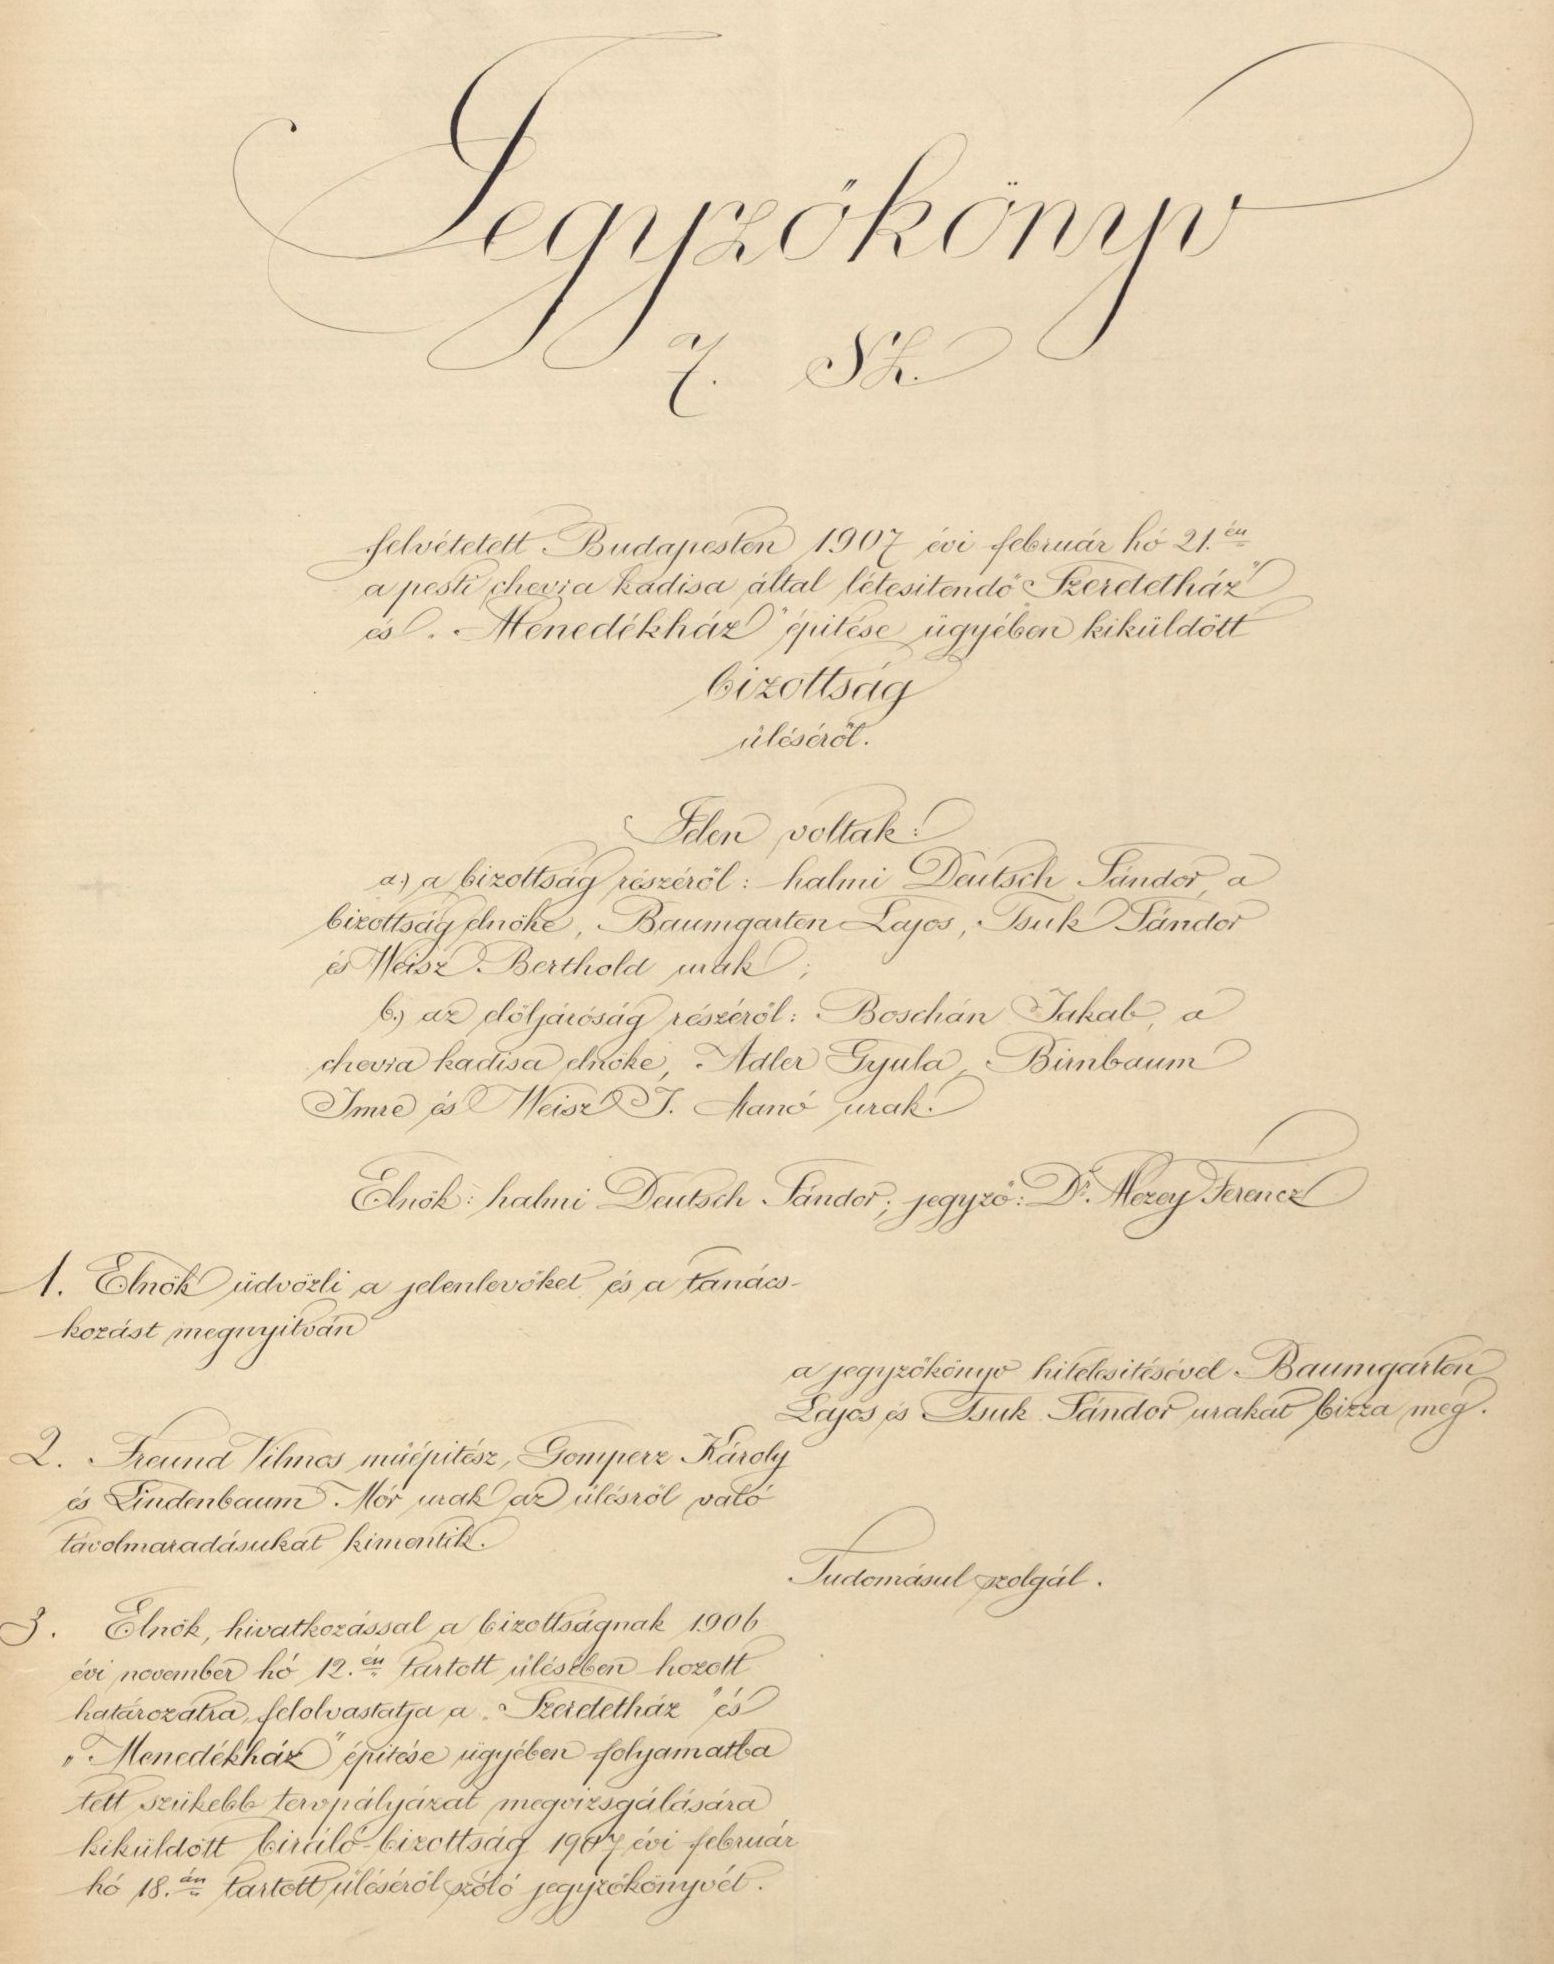 Jegyzőkönyv
7. Sz.
felvétetett Budapesten 1907 évi február hó 21.én
a pesti chevra kadisa által létesitendő „Szeretetház"
és „Menedékház" épitése ügyében kiküldött
bizottság
üléséről.
Jelen voltak:
a.) a bizottság részéről: halmi Deutsch Sándor, a
bizottság elnöke, Baumgarten Lajos, Tsuk Sándor
és Weisz Berthold urak;
b.) az elöljáróság részéről: Boschán Jakab, a
chevra kadisa elnöke, Adler Gyula, Birnbaum
Imre és Weisz J. Manó urak.
Elnök: halmi Deutsch Sándor; jegyző: Dr. Mezey Ferencz
1. Elnök üdvözli a jelenlevőket és a tanács-
kozást megnyitván
a jegyzőkönyv hitelesitésével Baumgarten
Lajos és Tsuk Sándor urakat bizza meg.
2. Freund Vilmos műépitész, Gomperz Károly
és Lindenbaum Mór urak az ülésről való
távolmaradásukat kimentik.
Tudomásul szolgál.
3. Elnök, hivatkozással a bizottságnak 1906
évi november hó 12.én tartott ülésében hozott
határozatra, felolvastatja a „Szeretetház" és
„Menedékház" épitése ügyében folyamatba
tett szűkebb tervpályázat megvizsgálására
kiküldött biráló-bizottság 1907 évi február
hó 18.án tartott üléséről szóló jegyzőkönyvét.